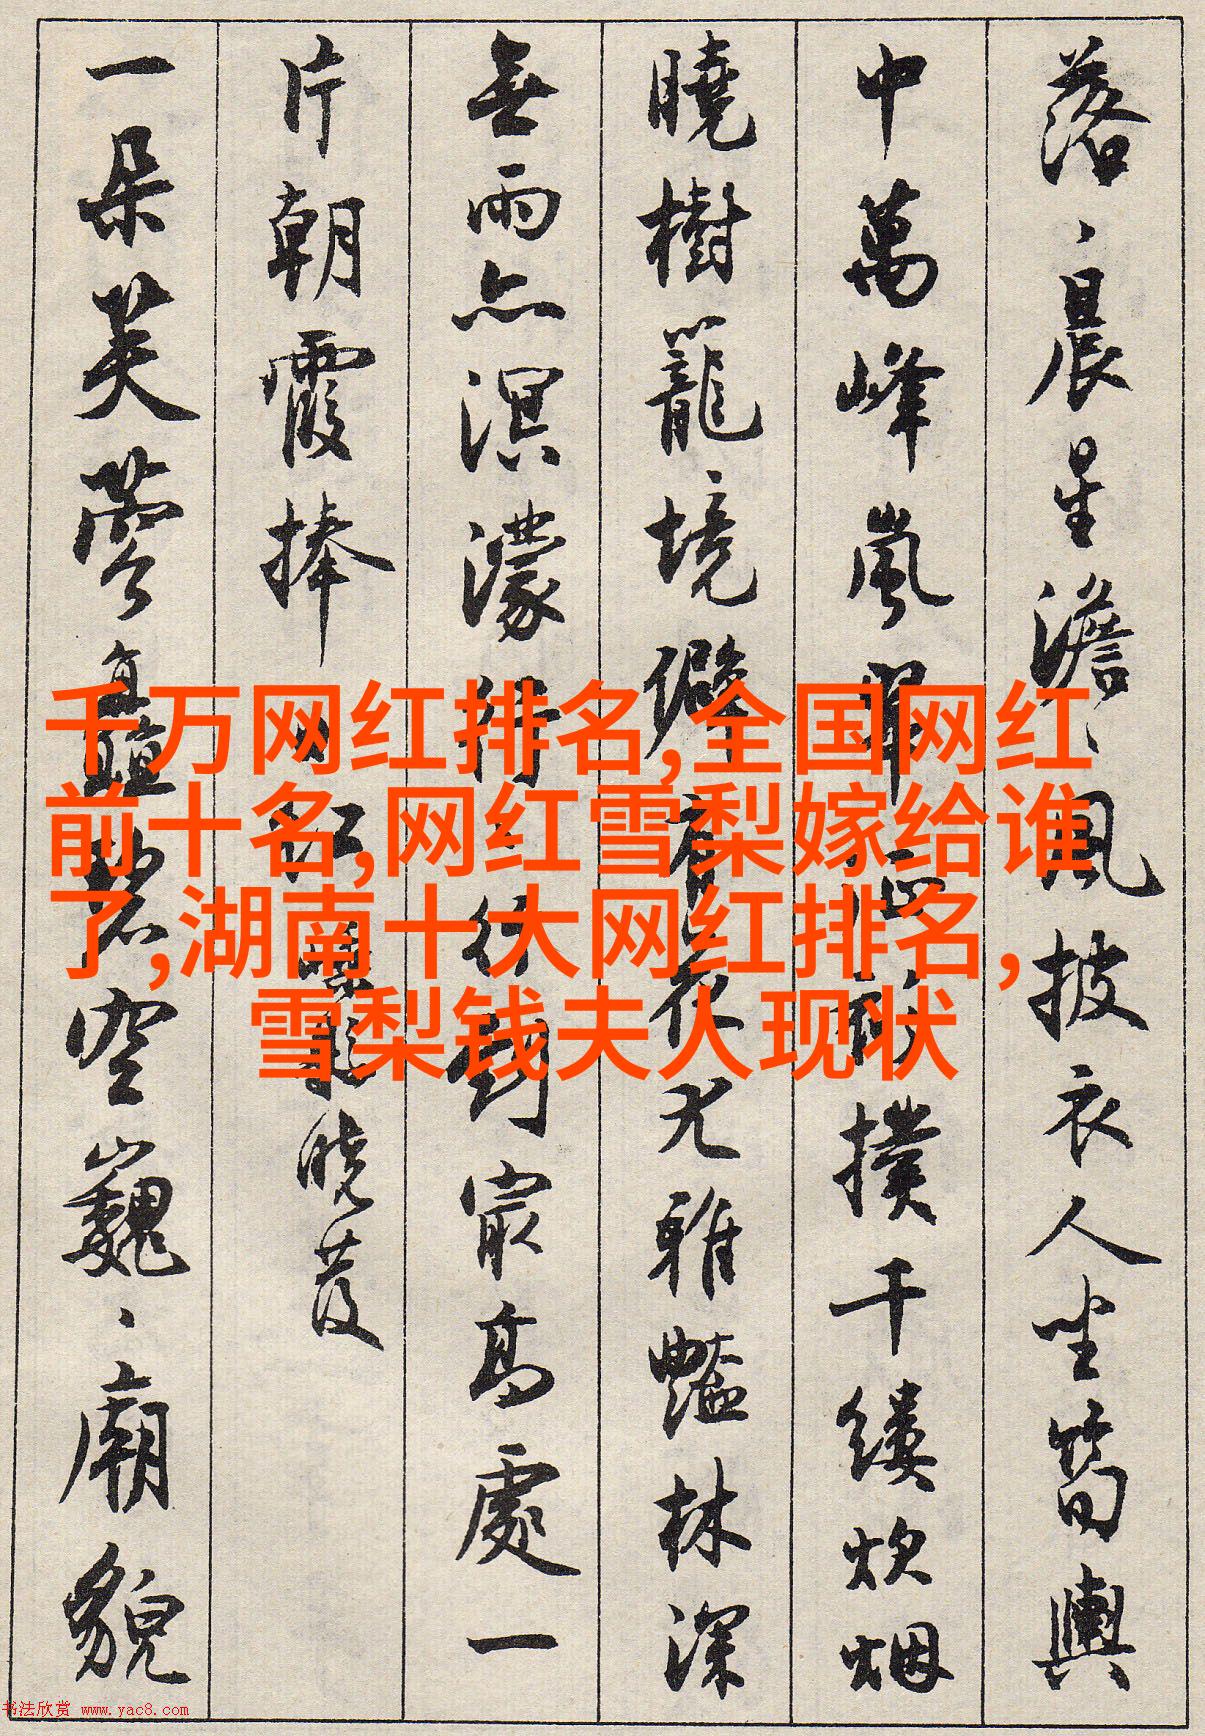 落、晨星澹、風披衣人坐笋輿
中萬峰嵐翠 撲千縷炊烟
曉樹籠、境僻 花尤雅豔林深
無雨亦溟濛行、行到最高處一
片朝霞捧
曉茛
一朵芙蓉直 碧空巍、廟貌
千万网红排名,全国网红
前十名,网红雪梨嫁给谁
了,湖南十大网红排名,
雪梨钱夫人现状
书法欣赏 www.yac8.com